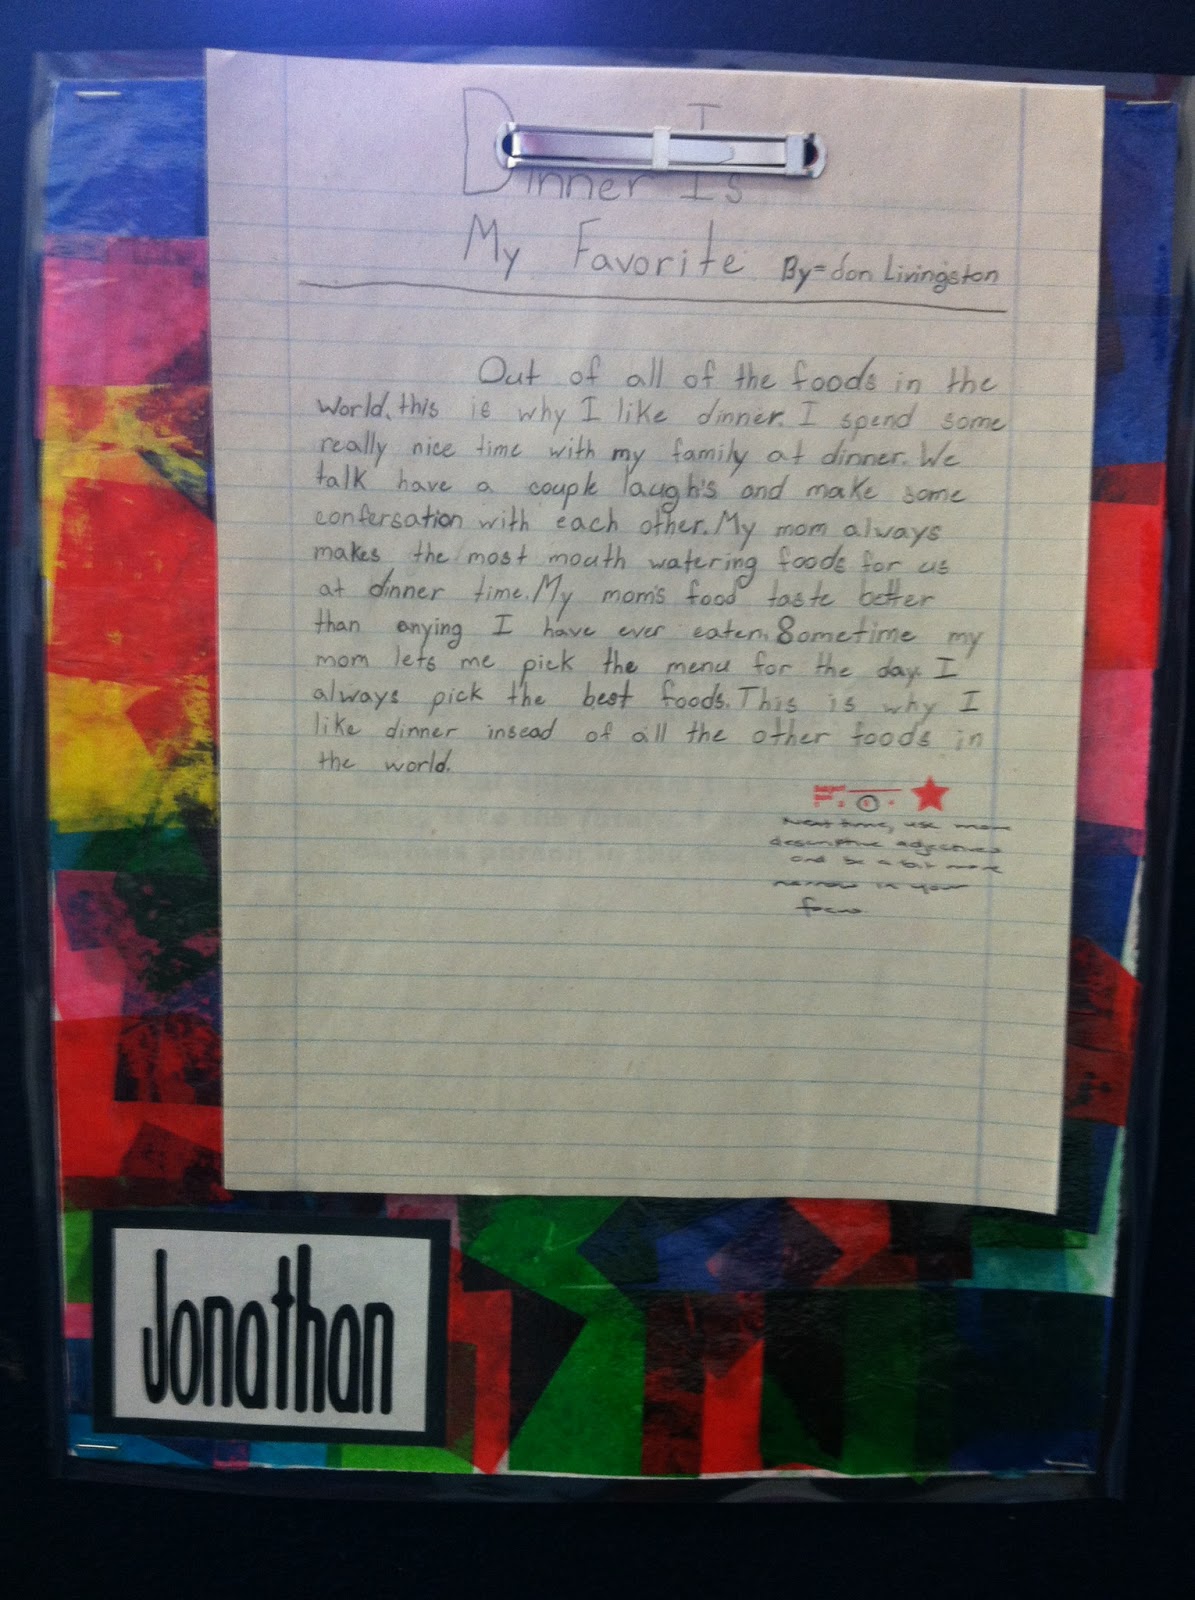 Dinner Is
My Favorite By=Jon Livingston
Out of all of the foods in the
world, this is why I like dinner. I spend some
really nice time with my family at dinner. We
talk have a couple laugh's and make some
confersation with each other. My mom always
makes the most mouth watering foods for us
at dinner time. My mom's food taste better
than anying I have ever eaten. Sometime my
mom lets me pick the menu for the day. I
always pick the best foods. This is why I
like dinner insead of all the other foods in
the world.
Next time, use more
descriptive adjectives
and be a bit more
narrow in your
focus
Jonathan